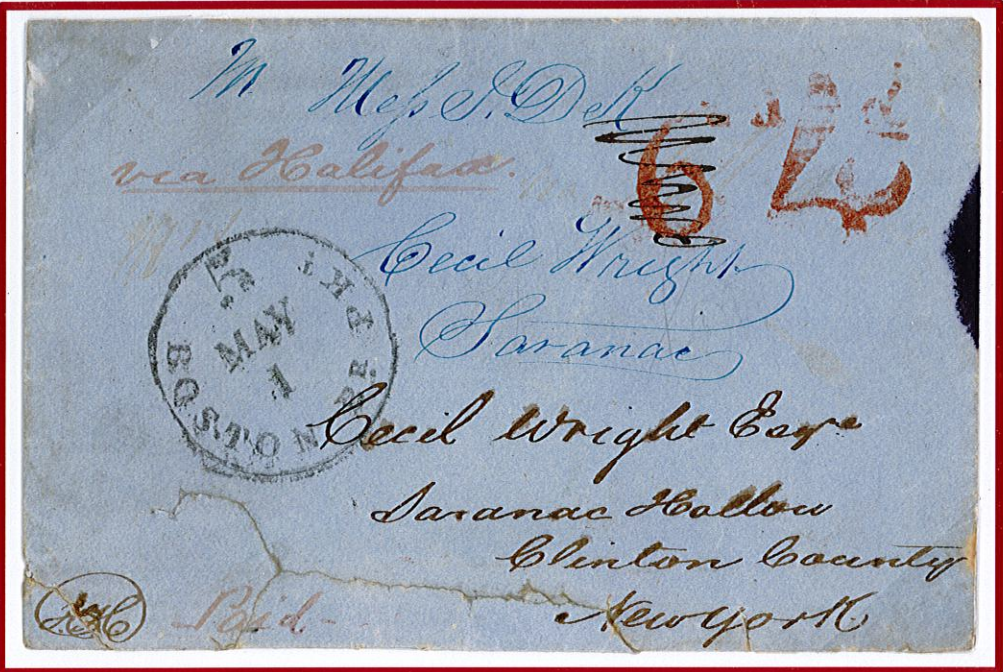 M. Mess J. DeK
via Halifax.
6 4
Cecil Wright
Saranac
5
MAY
1
BOSTON BR. PKT
Cecil Wright Esqre
Saranac Hollow
Clinton County
New York
Paid.